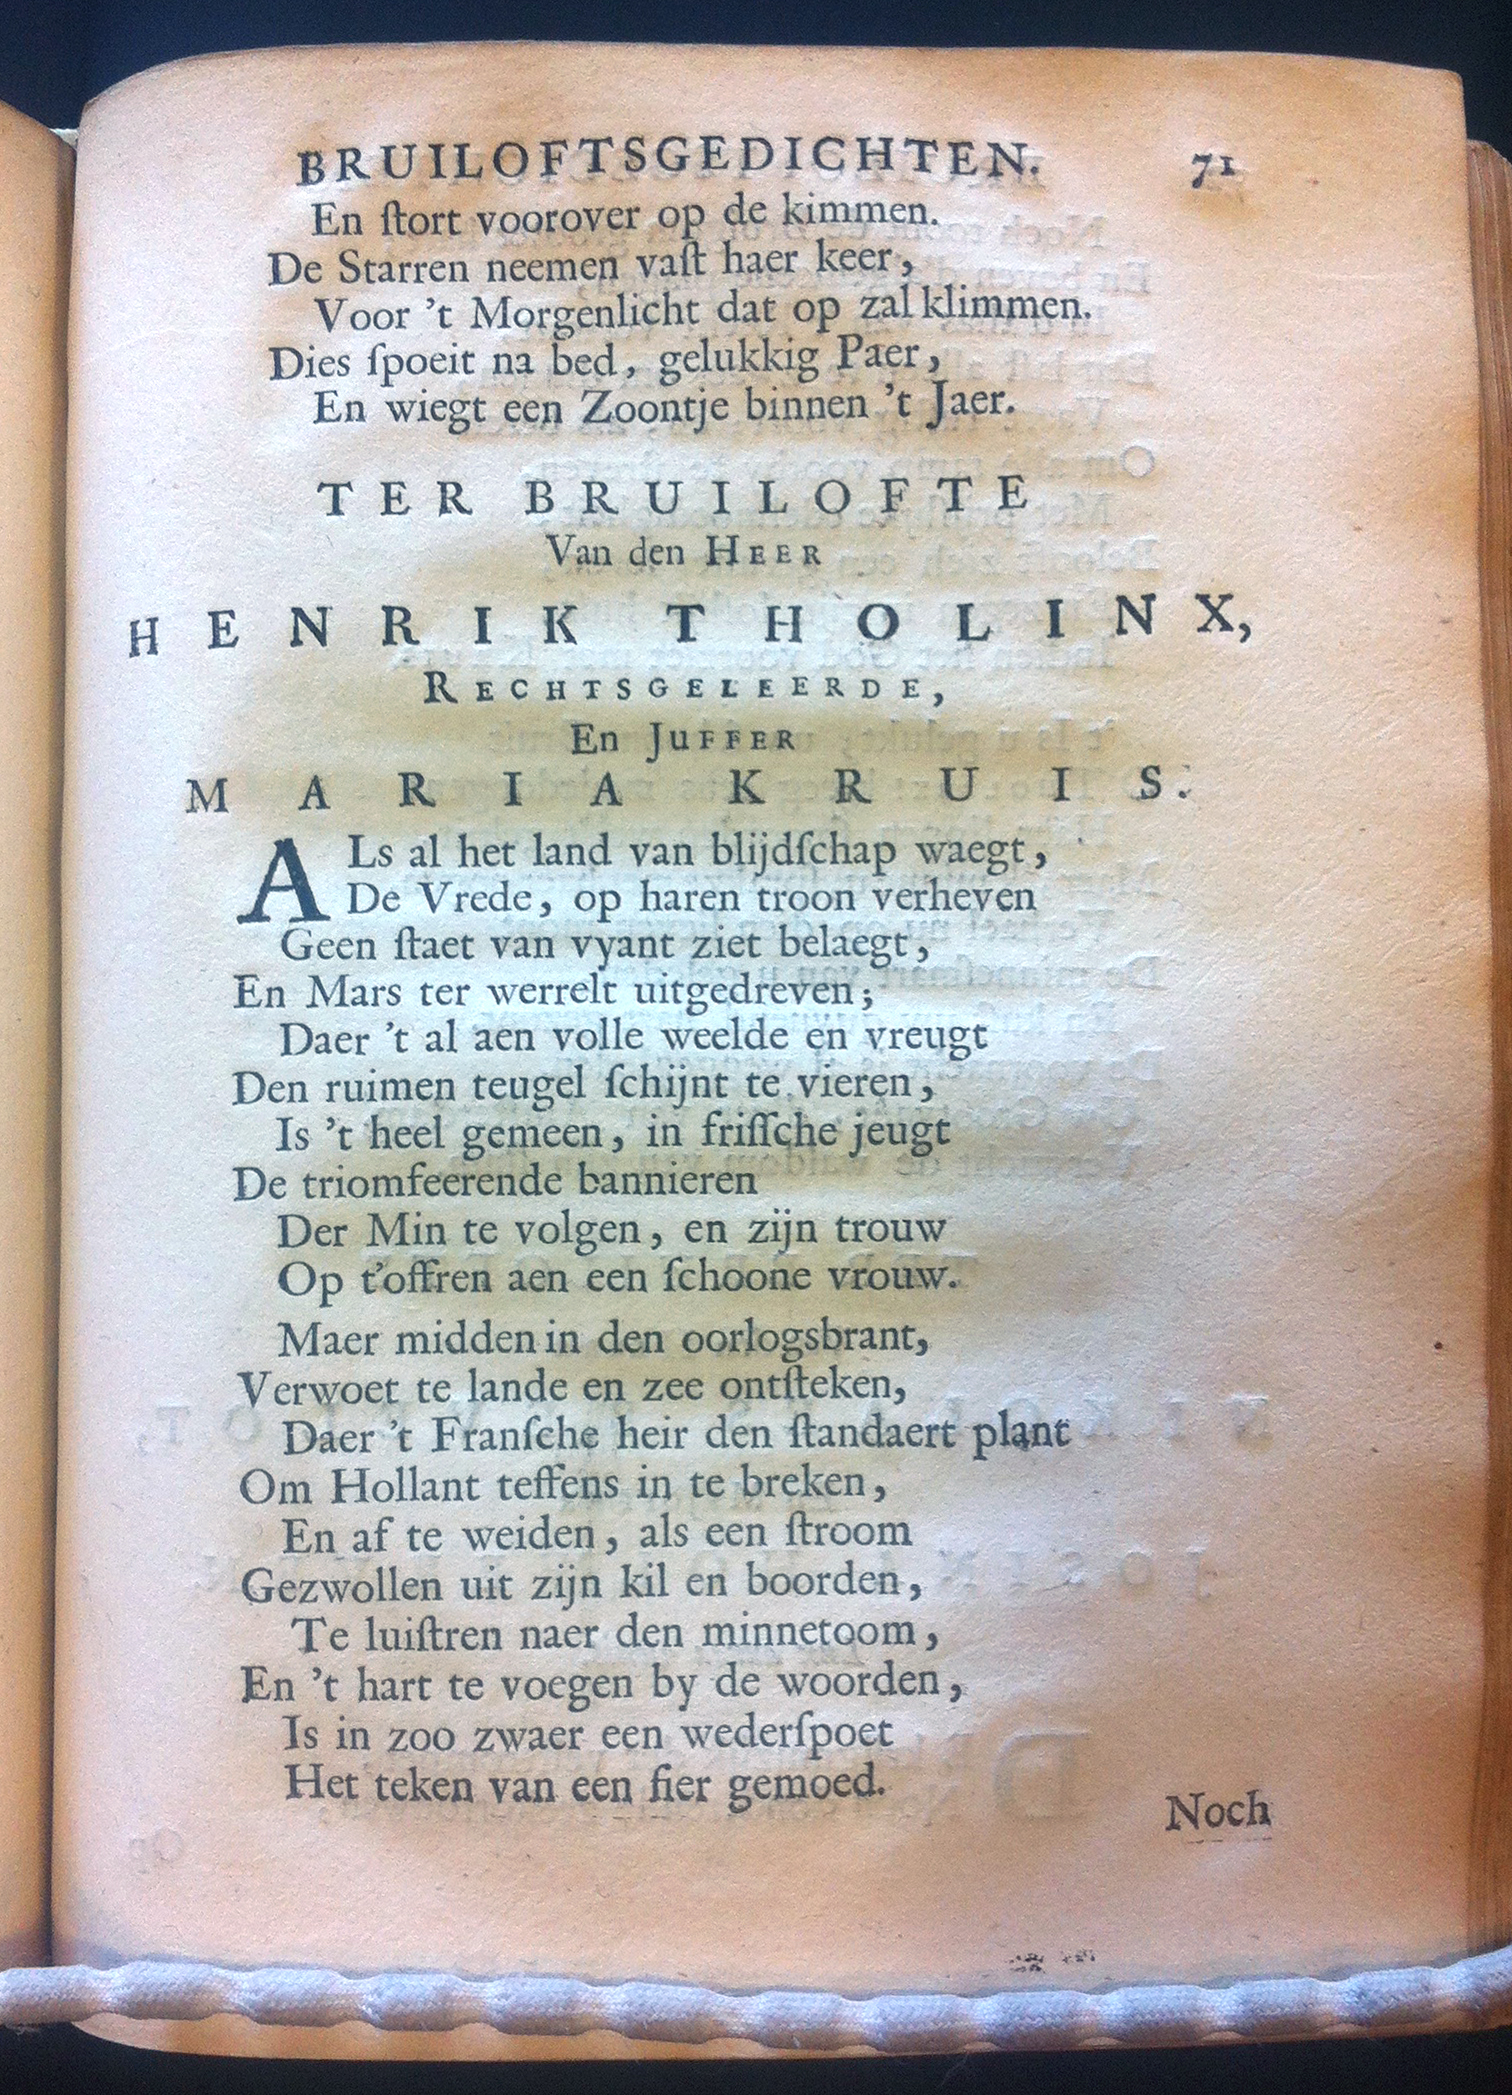 BRUILOFTSGEDICHTEN. 71
En ſtort voorover op de kimmen.
De Starren neemen vaſt haer keer,
Voor 't Morgenlicht dat op zal klimmen.
Dies ſpoeit na bed, gelukkig Paer,
En wiegt een Zoontje binnen 't Jaer.
TER BRUILOFTE
Van den HEER
HENRIK THOLINX,
RECHTSGELEERDE,
En JUFFER
MARIA KRUIS.
ALs al het land van blijdſchap waegt,
De Vrede, op haren troon verheven
Geen ſtaet van vyant ziet belaegt,
En Mars ter werrelt uitgedreven;
Daer 't al aen volle weelde en vreugt
Den ruimen teugel ſchijnt te vieren,
Is 't heel gemeen, in friſſche jeugt
De triomfeerende bannieren
Der Min te volgen, en zijn trouw
Op t'offren aen een ſchoone vrouw.
Maer midden in den oorlogsbrant,
Verwoet te lande en zee ontſteken,
Daer 't Franſche heir den ſtandaert plant
Om Hollant teffens in te breken,
En af te weiden, als een ſtroom
Gezwollen uit zijn kil en boorden,
Te luiſtren naer den minnetoom,
En 't hart te voegen by de woorden,
Is in zoo zwaer een wederſpoet
Het teken van een fier gemoed.
Noch